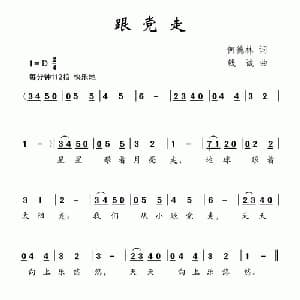 跟党走
1=D 2/4
何德林 词
钱诚 曲
每分钟112拍 快乐地
(3 4 5 0 | 3 4 5 0 | 5 · 6 | 1 2 3 4 0 | 0 2 0 3 |
1 · 0) | 3 4 5 0 | 3 4 5 0 | 4 · 2 | 2 3 4 0 | 0 2 0 4 |
星星 跟着月亮走, 地球 跟着
3 1 | 2 · 0 | 3 4 5 0 | 3 4 5 0 | 4 · 6 | 2 3 4 0 |
太阳走; 我们 从小跟党走, 天天
0 4 0 4 | 3 · 1 | 2 · 0 | 2 3 4 0 | 0 4 0 2 | 3 2 | 1 · 0
向上乐悠悠, 天天 向上乐悠悠。